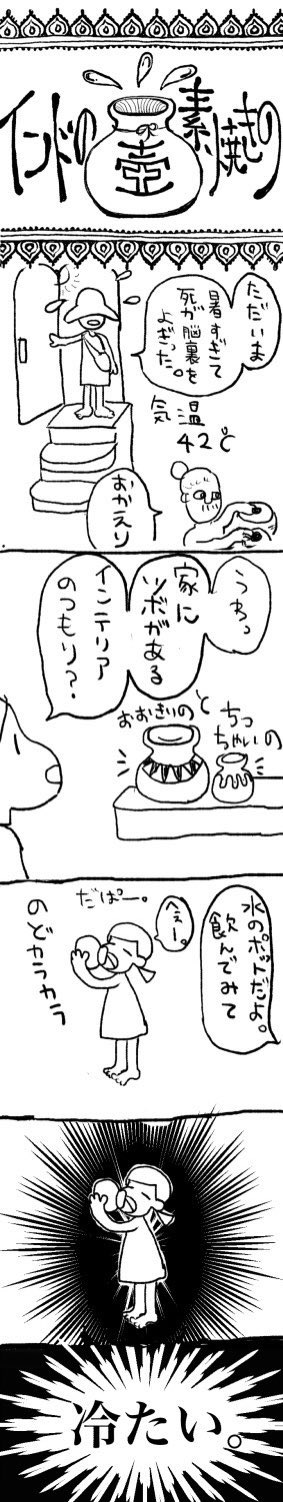 インドの
素焼きの
壺
ただいま
暑すぎて
死が脳裏を
よぎった。
気温
42℃
おかえり
うわっ
家に
ツボがある
インテリア
のつもり?
おおきいのと
ちっ
ちゃいの
水のポットだよ。
飲んでみて
へぇー。
だぱー。
のどカラカラ
冷たい。